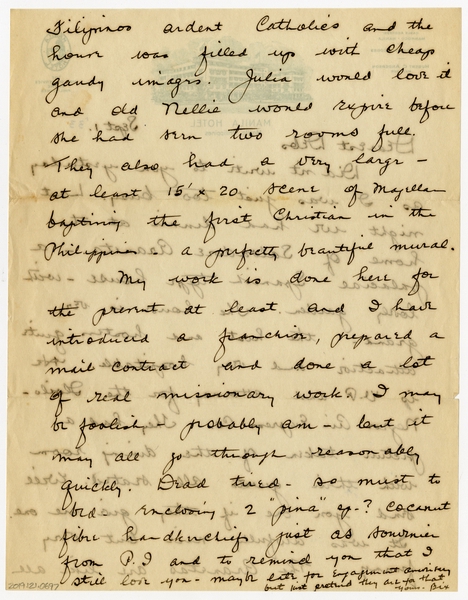 Filipinos ardent Catholics and the
house was filled up with cheap
gaudy images. Julia would love it
and old Nellie would expire before
she had seen two rooms full.
They also had a very large –
at least 15' x 20, scene of Magellan
baptizing the first Christian in the
Philippines a perfectly beautiful mural.
My work is done here for
the present at least. and I have
introduced a franchise, prepared a
mail contract and done a lot
of real missionary work. I may
be foolish – probably am – but it
may all go through reasonably
quickly. Dead tired – so must to
bed. Enclosing 2 "pina" sp-? cocanut
fibre handkerchiefs just as souvenier
from P.I and to remind you that I
still love you – maybe late for Engagement anniversary
but just pretend they are for that
Yours – Bix
2019.121.0697